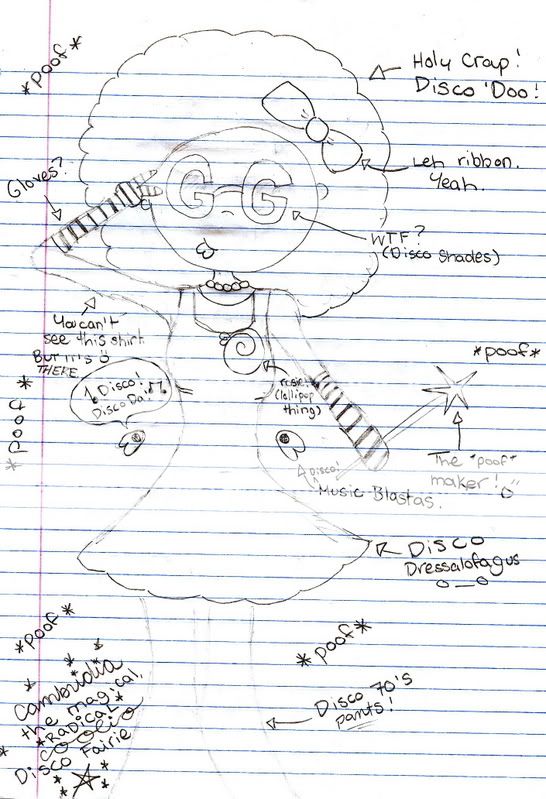 *poof*
Holy Crap!
Disco 'Doo!
Gloves?
Leh ribbon.
Yeah.
G G
WTF?
(Disco shades)
You can't
see this shirt.
But it's
THERE
*poof*
Disco!
Disco Da!
rose.
(lollipop
thing)
*poof*
The *poof*
maker!
Disco!
Music Blastas.
Disco
Dressalofagus
o_o
*poof*
*poof*
Disco 70's
pants!
Cambridia
the magical,
*RADICAL*
Disco Fairie